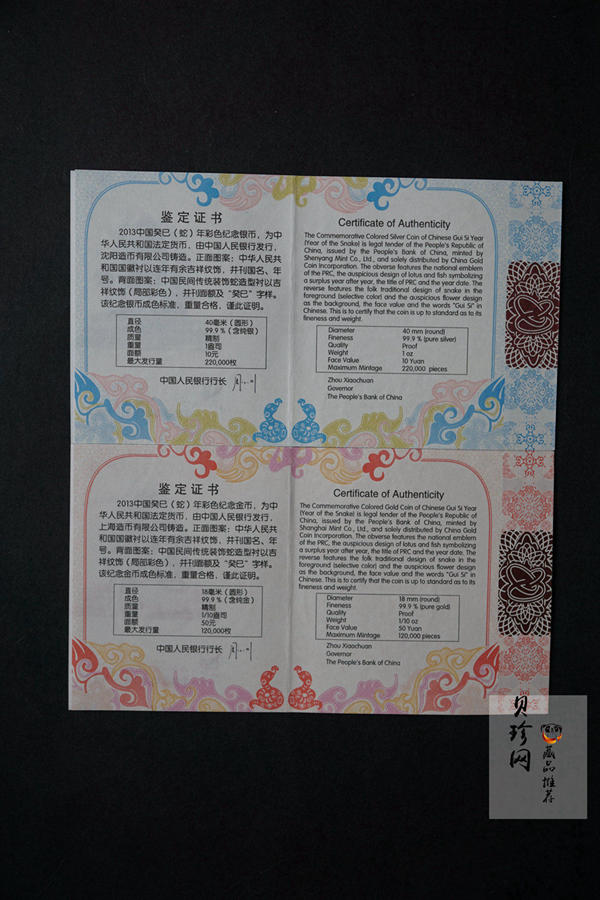 鉴定证书
2013中国癸巳（蛇）年彩色纪念银币，为中
华人民共和国法定货币，由中国人民银行发行，
沈阳造币有限公司铸造。正面图案：中华人民共
和国国徽衬以连年有余吉祥纹饰，并刊国名、年
号。背面图案：中国民间传统装饰蛇造型衬以吉
祥纹饰（局部彩色），并刊面额及“癸巳”字样。
该纪念银币成色标准，重量合格，谨此证明。
直径 40毫米（圆形）
成色 99.9％（含纯银）
质量 精制
重量 1盎司
面额 10元
最大发行量 220,000枚
中国人民银行行长
Certificate of Authenticity
The Commemorative Colored Silver Coin of Chinese Gui Si Year
(Year of the Snake) is legal tender of the People's Republic of
China, issued by the People's Bank of China, minted by
Shenyang Mint Co., Ltd., and solely distributed by China Gold
Coin Incorporation. The obverse features the national emblem
of the PRC, the auspicious design of lotus and fish symbolizing
a surplus year after year, the title of PRC and the year date. The
reverse features the folk traditional design of snake in the
foreground (selective color) and the auspicious flower design
as the background, the face value and the words "Gui Si" in
Chinese. This is to certify that the coin is up to standard as to its
fineness and weight.
Diameter 40 mm (round)
Fineness 99.9 % (pure silver)
Quality Proof
Weight 1 oz
Face Value 10 Yuan
Maximum Mintage 220,000 pieces
Zhou Xiaochuan
Governor
The People's Bank of China
鉴定证书
2013中国癸巳（蛇）年彩色纪念金币，为中
华人民共和国法定货币，由中国人民银行发行，
上海造币有限公司铸造。正面图案：中华人民共
和国国徽衬以连年有余吉祥纹饰，并刊国名、年
号。背面图案：中国民间传统装饰蛇造型衬以吉
祥纹饰（局部彩色），并刊面额及“癸巳”字样。
该纪念金币成色标准，重量合格，谨此证明。
直径 18毫米（圆形）
成色 99.9％（含纯金）
质量 精制
重量 1/10盎司
面额 50元
最大发行量 120,000枚
中国人民银行行长
Certificate of Authenticity
The Commemorative Colored Gold Coin of Chinese Gui Si Year
(Year of the Snake) is legal tender of the People's Republic of
China, issued by the People's Bank of China, minted by
Shanghai Mint Co., Ltd., and solely distributed by China Gold
Coin Incorporation. The obverse features the national emblem
of the PRC, the auspicious design of lotus and fish symbolizing
a surplus year after year, the title of PRC and the year date. The
reverse features the folk traditional design of snake in the
foreground (selective color) and the auspicious flower design
as the background, the face value and the words "Gui Si" in
Chinese. This is to certify that the coin is up to standard as to its
fineness and weight.
Diameter 18 mm (round)
Fineness 99.9 % (pure gold)
Quality Proof
Weight 1/10 oz
Face Value 50 Yuan
Maximum Mintage 120,000 pieces
Zhou Xiaochuan
Governor
The People's Bank of China
贝珍网
藏品推荐